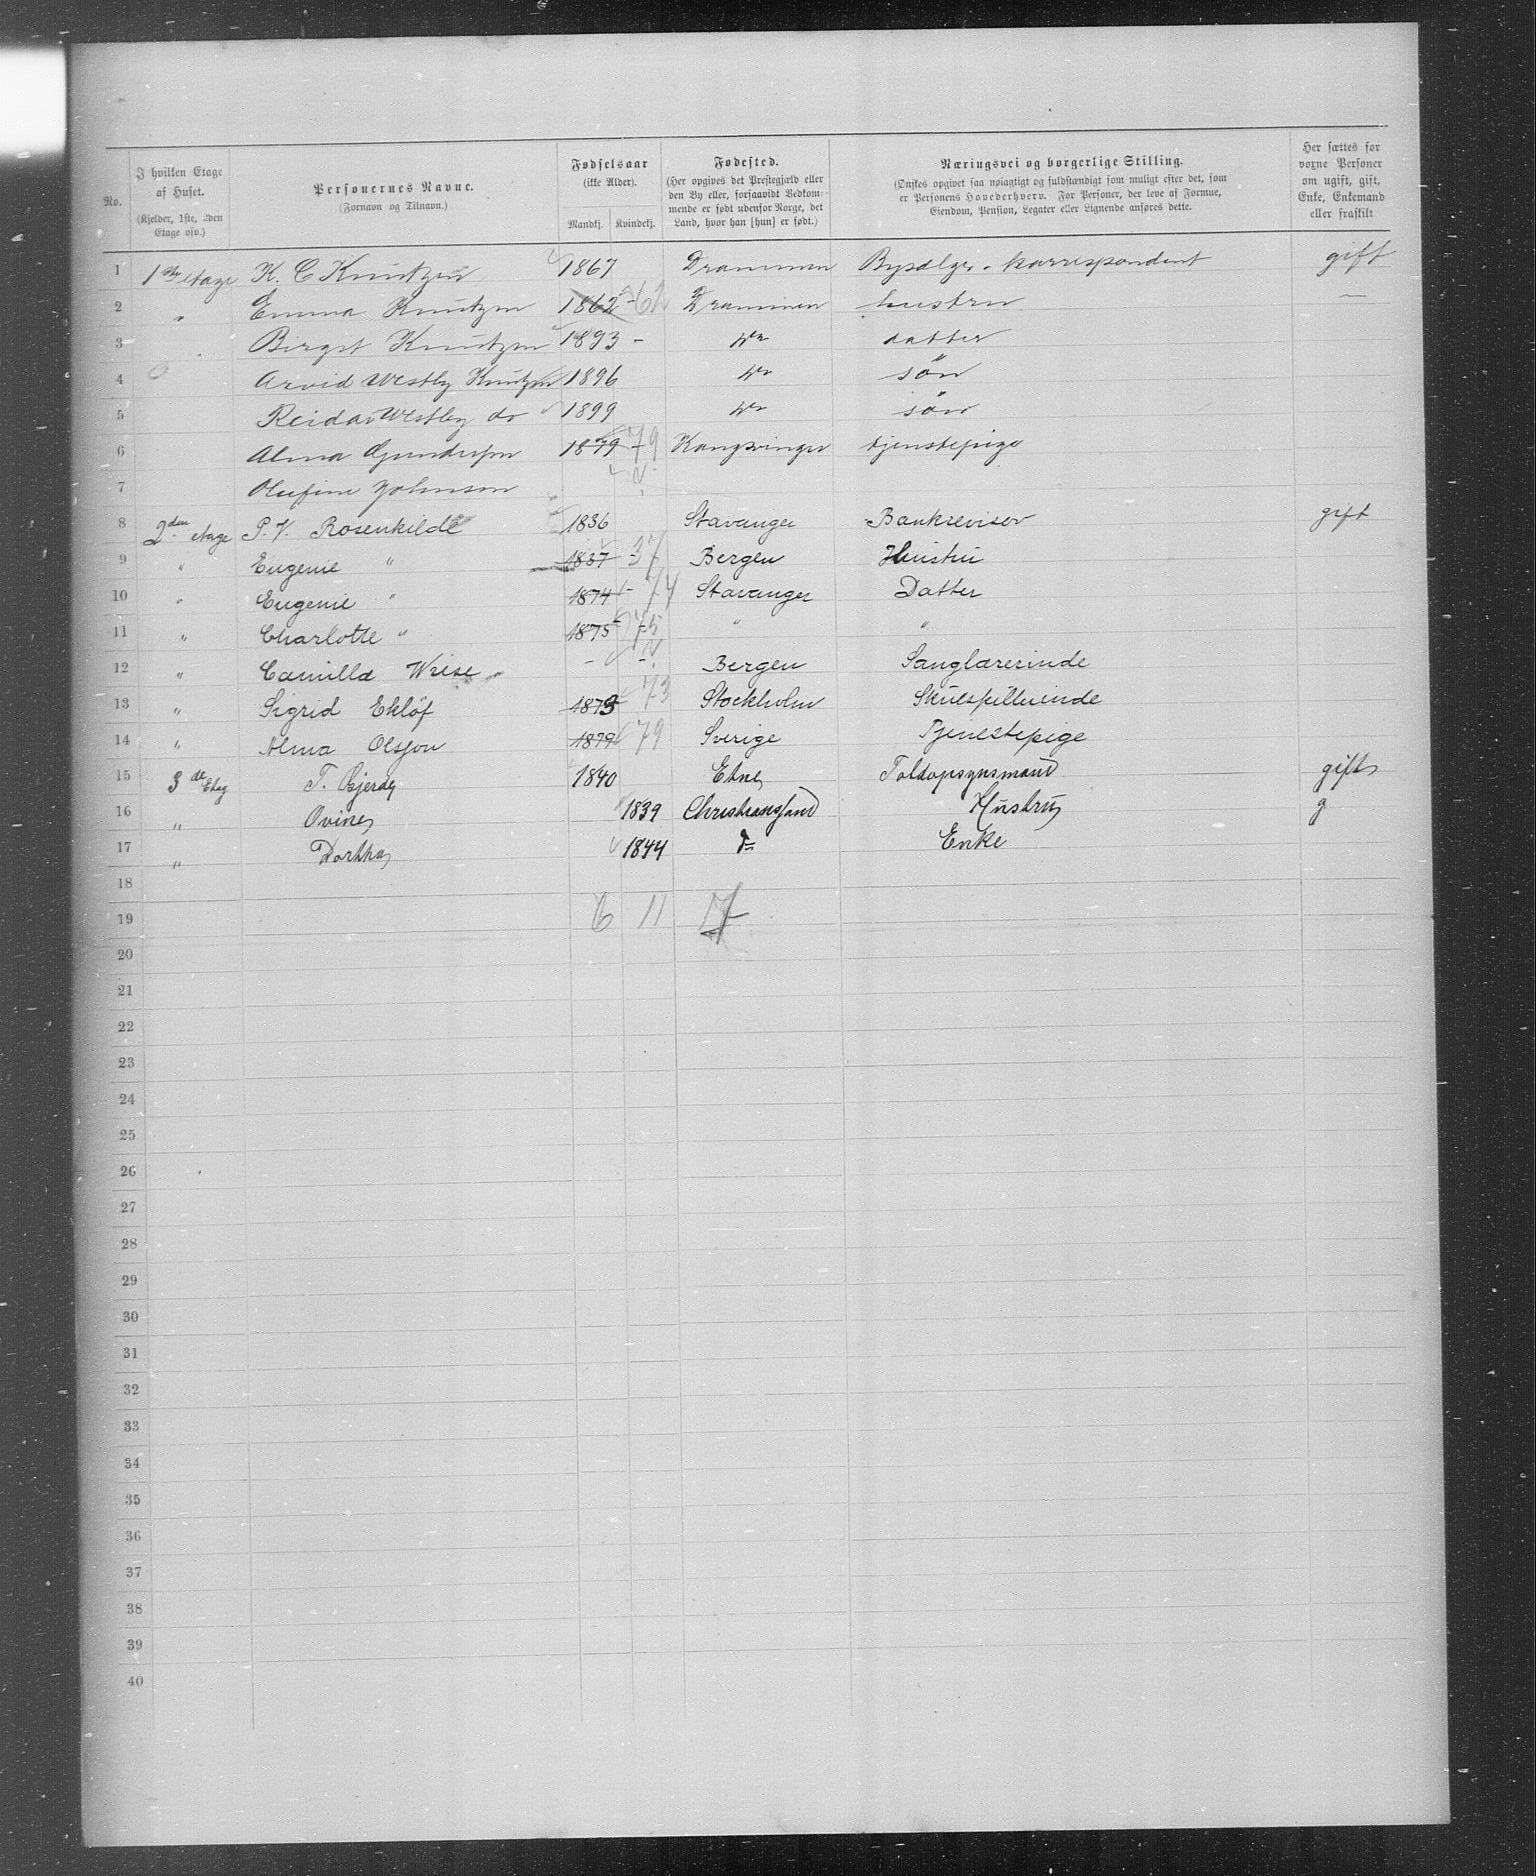 No.
I hvilken Etage af Huset.
(Kjelder, 1ste, 2den Etage osv.)
Personernes Navne.
(Fornavn og Tilnavn.)
Fødselsaar
(ikke Alder).
Mandkj. Kvindekj.
Fødested.
(Her opgives det Prestegjæld eller
den By eller, forsaavidt Vedkom-
mende er født udenfor Norge, det
Land, hvor han [hun] er født.)
Næringsvei og borgerlige Stilling.
(Ønskes opgivet saa nøiagtigt og fuldstændigt som muligt efter det, som
er Personens Hovederhverv. For Personer, der leve af Formue,
Eiendom, Pension, Legater eller Lignende anføres dette.
Her sættes for
voxne Personer
om ugift, gift,
Enke, Enkemand
eller fraskilt
1 1ste etage K. C Knutzen 1867 Drammen korrespondent gift
2 " Emma Knutzen 1862 - 62 Drammen hustru —
3 Birgit Knutzen 1893 - do datter
4 Arvid Westby Knutzen 1896 do sön
5 Reidar Westby do 1899 do sön
6 Alma Gundersen 1879 - 79 Kongsvinger tjenstepige
7 Olufine Johnson
8 2den etage P. V. Rosenkilde 1836 Stavanger Bankrevisor gift
9 " Eugenie " 1837 - 37 Bergen Hustru
10 " Eugenie " 1874 - 74 Stavanger Datter
11 " Charlotte " 1875 75 " "
12 " Camilla Wiese - - Bergen Sanglærerinde
13 " Sigrid Eklöf 1873 73 Stockholm Skuespillerinde
14 " Alma Olsson 1879 79 Sverige Tjenestepige
15 3de Etag T. Bjerde 1840 Etne Toldopsynsmand gift
16 " Ovine 1839 Christianssand Hustru g
17 " Dorthea 1844 do Enke
18
19 6 11 17
20
21
22
23
24
25
26
27
28
29
30
31
32
33
34
35
36
37
38
39
40